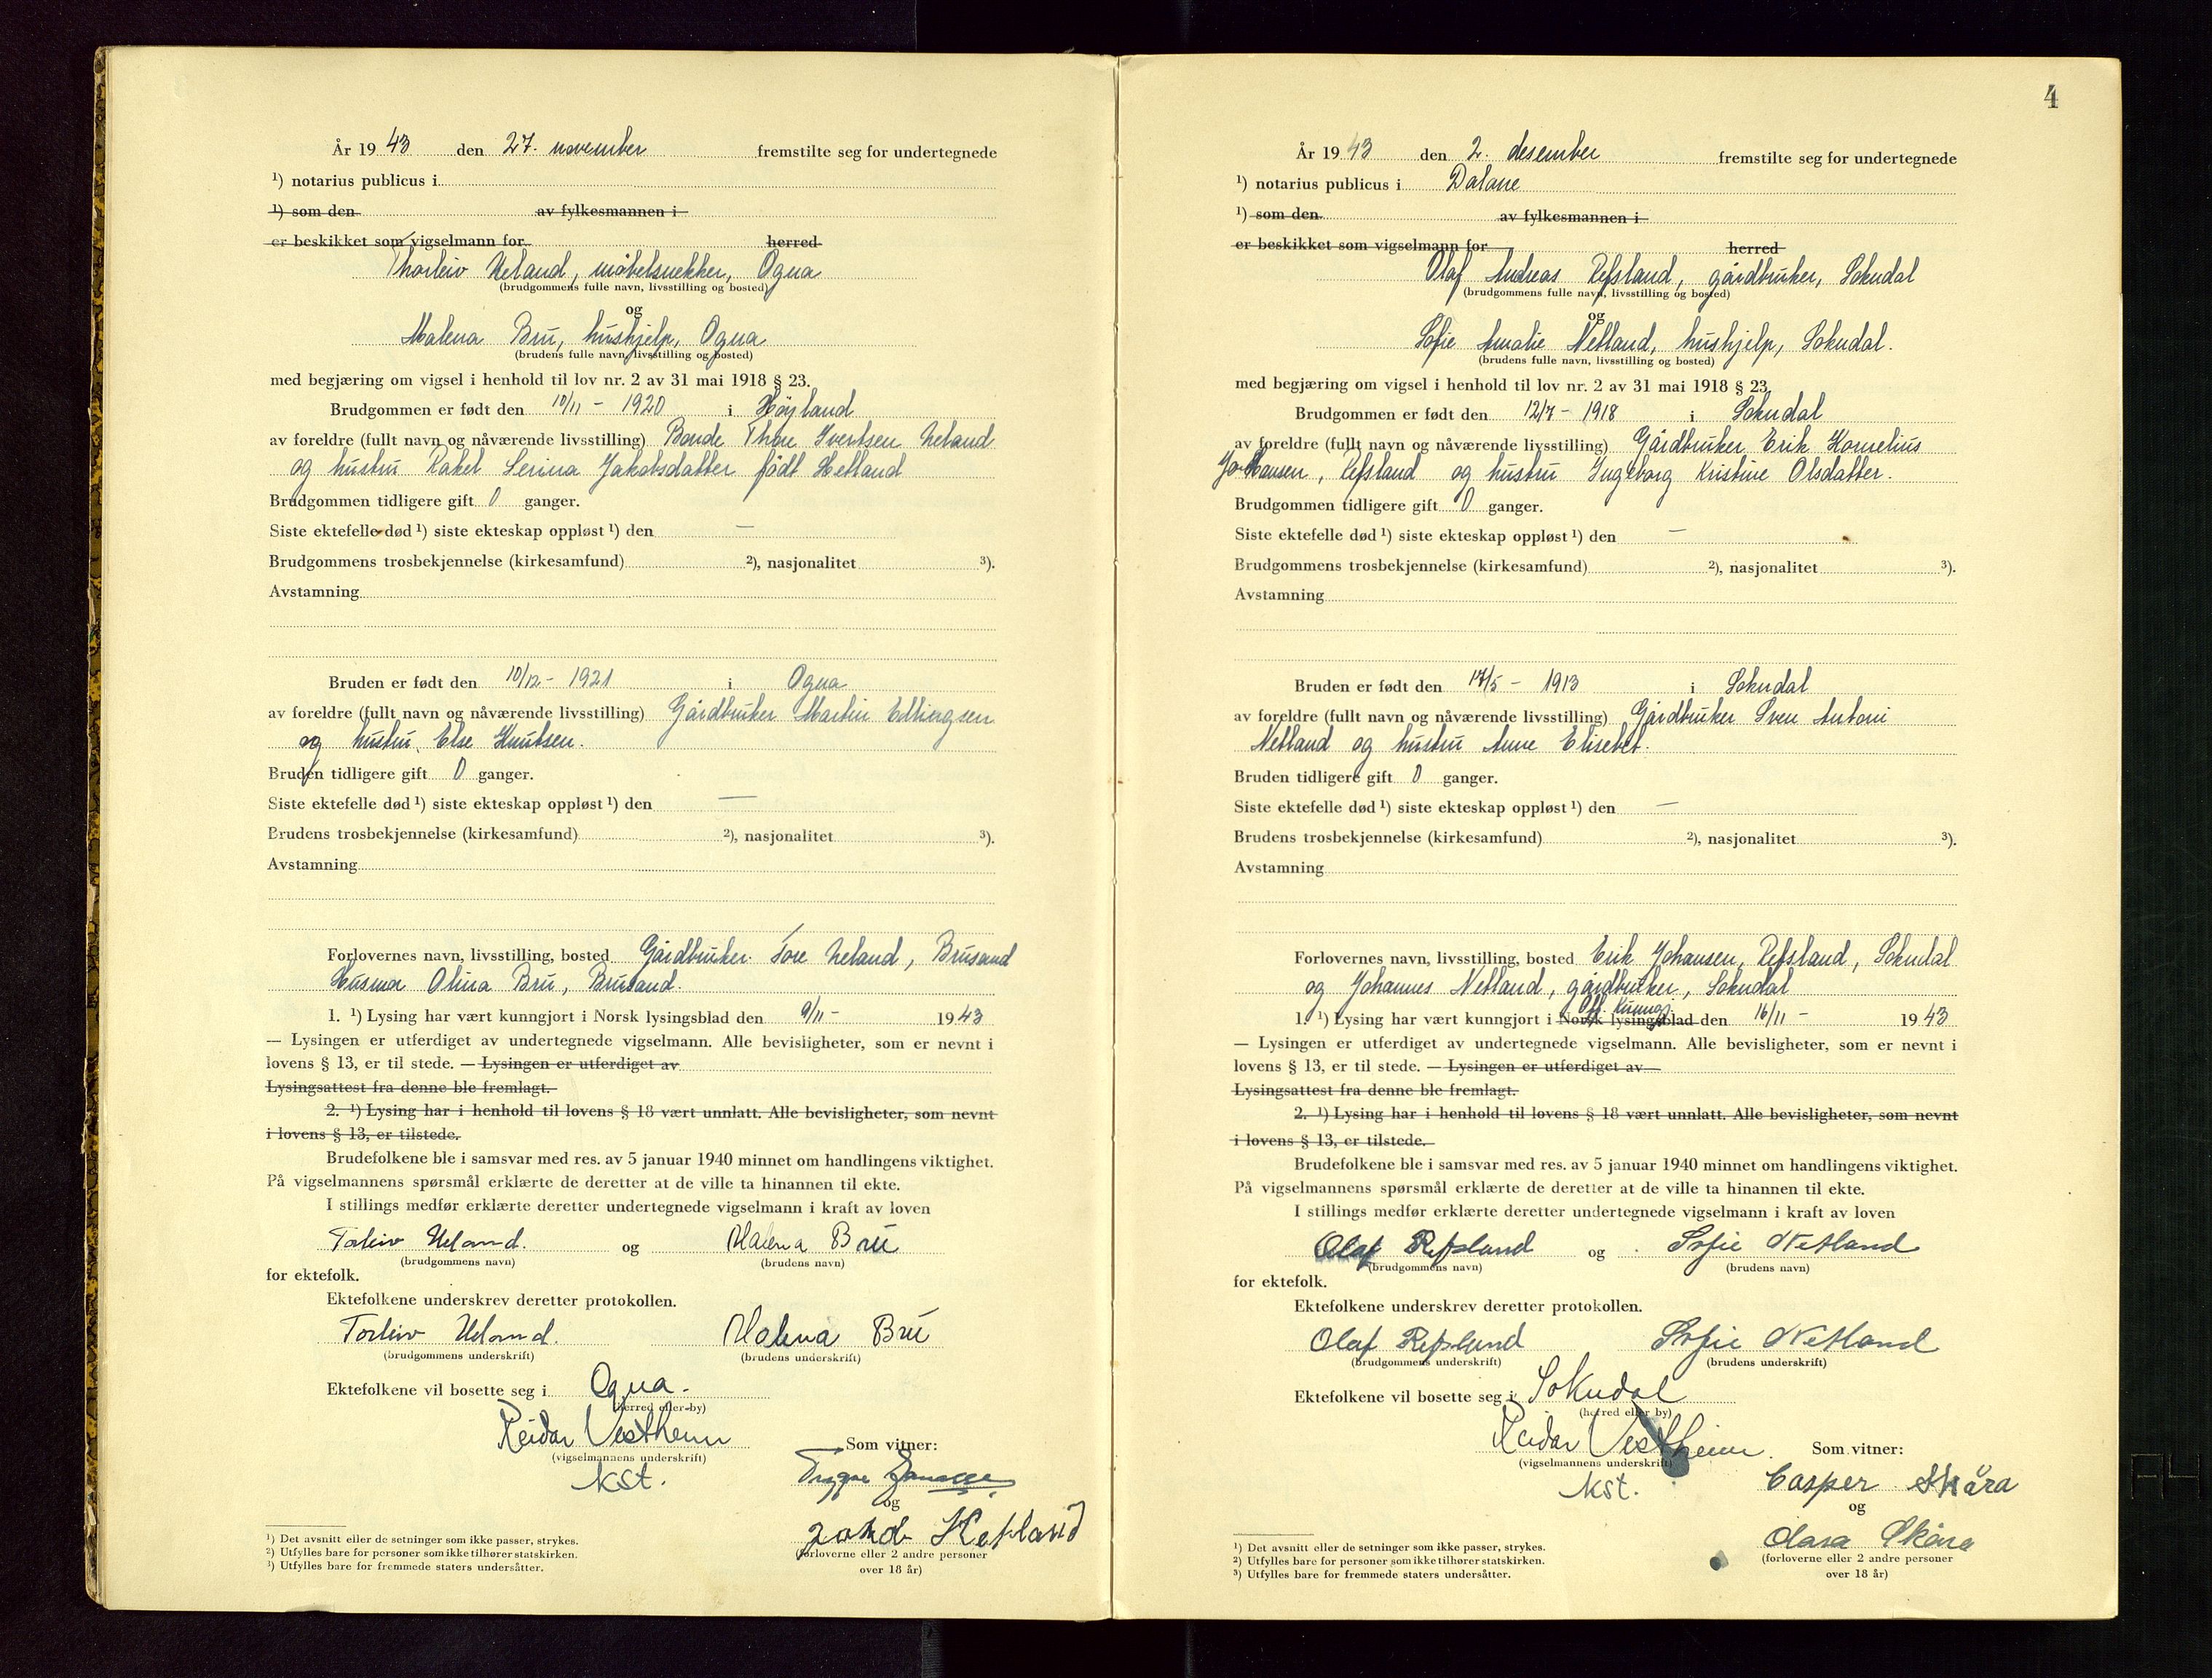 År 19 43 den 27. november fremstilte seg for undertegnede
¹) notarius publicus i
¹) som den av fylkesmannen i
er beskikket som vigselmann for herred
Thorleiv Ueland, møbelsnekker, Ogna
(brudgommens fulle navn, livsstilling og bosted)
og
Malena Bru, hushjelp, Ogna
(brudens fulle navn, livsstilling og bosted)
med begjæring om vigsel i henhold til lov nr. 2 av 31 mai 1918 § 23.
Brudgommen er født den 10/11 - 1920 i Høyland
av foreldre (fullt navn og nåværende livsstilling) Bonde Thore Ivertsen Ueland
og hustru Rakel Serina Jakobsdatter født Hetland
Brudgommen tidligere gift 0 ganger.
Siste ektefelle død ¹) siste ekteskap oppløst ¹) den —
Brudgommens trosbekjennelse (kirkesamfund) ²), nasjonalitet ³).
Avstamning
Bruden er født den 10/12 - 1921 i Ogna
av foreldre (fullt navn og nåværende livsstilling) Gårdbruker Martin
og hustru Else Knutsen.
Bruden tidligere gift 0 ganger.
Siste ektefelle død ¹) siste ekteskap oppløst ¹) den —
Brudens trosbekjennelse (kirkesamfund) ²), nasjonalitet ³).
Avstamning
Forlovernes navn, livsstilling, bosted Gårdbruker Tore Ueland, Brusand
Husmor Olina Bru, Brusand.
1. ¹) Lysing har vært kunngjort i Norsk lysingsblad den 9/11 - 1943
— Lysingen er utferdiget av undertegnede vigselmann. Alle bevisligheter, som er nevnt i
lovens § 13, er til stede. — Lysingen er utferdiget av
Lysingsattest fra denne ble fremlagt.
2. ¹) Lysing har i henhold til lovens § 18 vært unnlatt. Alle bevisligheter, som nevnt
i lovens § 13, er tilstede.
Brudefolkene ble i samsvar med res. av 5 januar 1940 minnet om handlingens viktighet.
På vigselmannens spørsmål erklærte de deretter at de ville ta hinannen til ekte.
I stillings medfør erklærte deretter undertegnede vigselmann i kraft av loven
Torleiv Ueland. og Malena Bru
(brudgommens navn) (brudens navn)
for ektefolk.
Ektefolkene underskrev deretter protokollen.
Torleiv Ueland. Malena Bru
(brudgommens underskrift) (brudens underskrift)
Ektefolkene vil bosette seg i Ogna.
(herred eller by)
Reidar Vestheim
(vigselmannens underskrift)
kst.
Som vitner:
Trygve
og
Hetland
(forloverne eller 2 andre personer
over 18 år)
¹) Det avsnitt eller de setninger som ikke passer, strykes.
²) Utfylles bare for personer som ikke tilhører statskirken.
³) Utfylles bare for fremmede staters undersåtter.
4
År 19 43 den 2. desember fremstilte seg for undertegnede
¹) notarius publicus i Dalane
¹) som den av fylkesmannen i
er beskikket som vigselmann for herred
Olaf Andreas Refsland, gårdbruker, Sokndal
(brudgommens fulle navn, livsstilling og bosted)
og
Sofie Amalie Netland, hushjelp, Sokndal.
(brudens fulle navn, livsstilling og bosted)
med begjæring om vigsel i henhold til lov nr. 2 av 31 mai 1918 § 23.
Brudgommen er født den 12/7 - 1918 i Sokndal
av foreldre (fullt navn og nåværende livsstilling) Gårdbruker Erik Kornelius
Johansen, Refsland og hustru Ingeborg Kristine Olsdatter.
Brudgommen tidligere gift 0 ganger.
Siste ektefelle død ¹) siste ekteskap oppløst ¹) den —
Brudgommens trosbekjennelse (kirkesamfund) ²), nasjonalitet ³).
Avstamning
Bruden er født den 17/5 - 1913 i Sokndal
av foreldre (fullt navn og nåværende livsstilling) Gårdbruker Sven Antoni
Netland og hustru Anne Elisebet.
Bruden tidligere gift 0 ganger.
Siste ektefelle død ¹) siste ekteskap oppløst ¹) den —
Brudens trosbekjennelse (kirkesamfund) ²), nasjonalitet ³).
Avstamning
Forlovernes navn, livsstilling, bosted Erik Johansen, Refsland, Sokndal
og Johannes Netland, gårdbruker, Sokndal
Off. Kunngj.
1. ¹) Lysing har vært kunngjort i Norsk lysingsblad den 16/11 - 1943
— Lysingen er utferdiget av undertegnede vigselmann. Alle bevisligheter, som er nevnt i
lovens § 13, er til stede. — Lysingen er utferdiget av
Lysingsattest fra denne ble fremlagt.
2. ¹) Lysing har i henhold til lovens § 18 vært unnlatt. Alle bevisligheter, som nevnt
i lovens § 13, er tilstede.
Brudefolkene ble i samsvar med res. av 5 januar 1940 minnet om handlingens viktighet.
På vigselmannens spørsmål erklærte de deretter at de ville ta hinannen til ekte.
I stillings medfør erklærte deretter undertegnede vigselmann i kraft av loven
Olaf Refsland og Sofie Netland
(brudgommens navn) (brudens navn)
for ektefolk.
Ektefolkene underskrev deretter protokollen.
Olaf Refsland Sofie Netland
(brudgommens underskrift) (brudens underskrift)
Ektefolkene vil bosette seg i Sokndal
(herred eller by)
Reidar Vestheim
(vigselmannens underskrift)
kst.
Som vitner:
Casper Skåra
og
Clara Skåra
(forloverne eller 2 andre personer
over 18 år)
¹) Det avsnitt eller de setninger som ikke passer, strykes.
²) Utfylles bare for personer som ikke tilhører statskirken.
³) Utfylles bare for fremmede staters undersåtter.